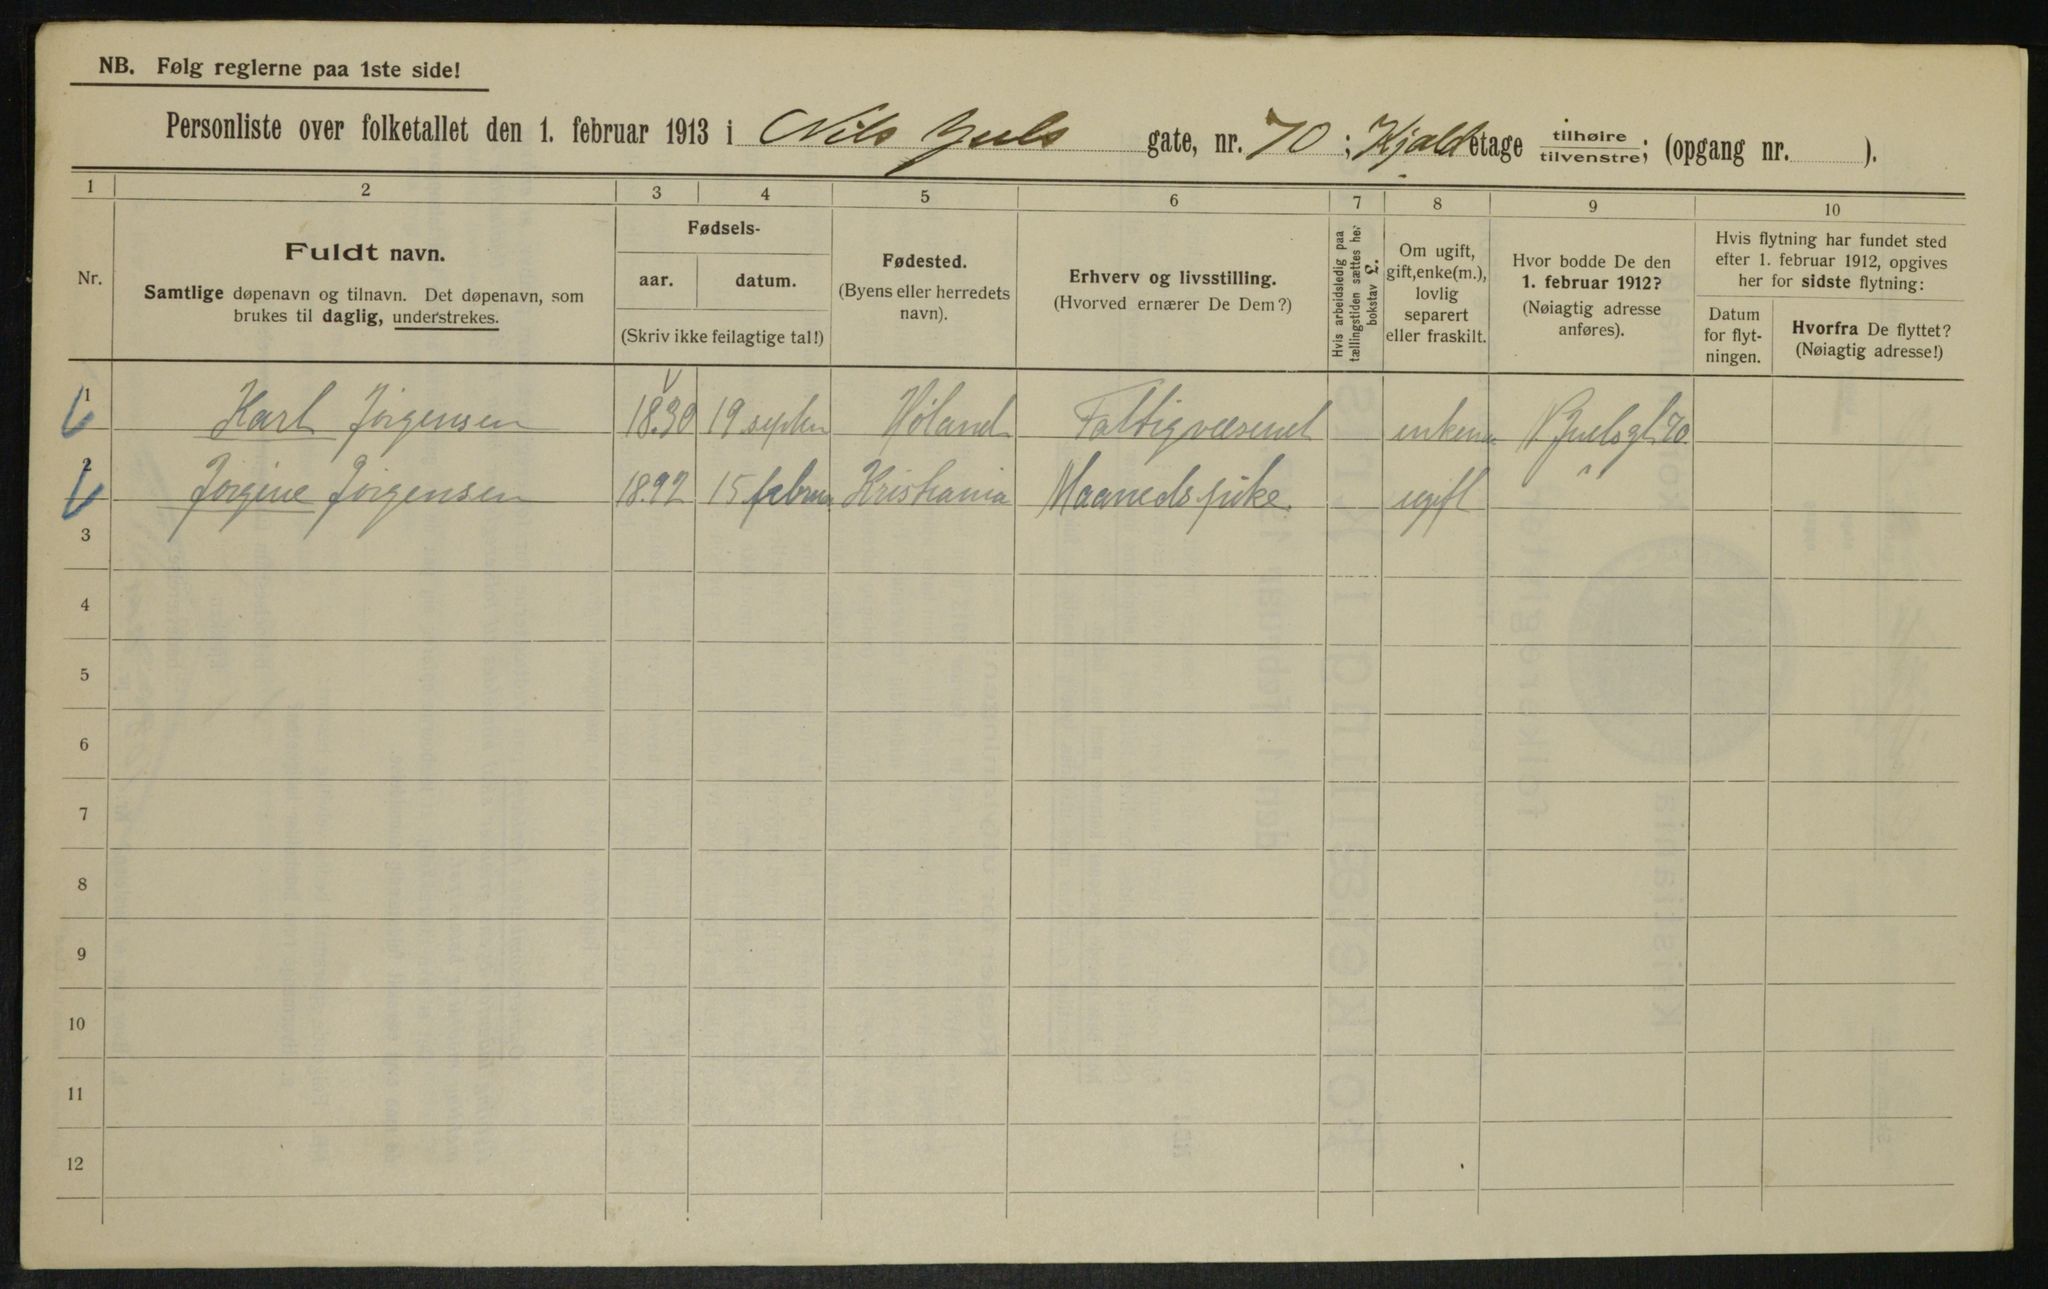 NB. Følg reglerne paa 1ste side!
Personliste over folketallet den 1. februar 1913 i Nils Juels gate, nr. 70; Kjeld etage tilhøire / tilvenstre; (opgang nr. ).
1 2 3 4 5 6 7 8 9 10
Nr.
Fuldt navn.
Samtlige døpenavn og tilnavn. Det døpenavn, som
brukes til daglig, understrekes.
Fødsels-
aar. datum.
(Skriv ikke feilagtige tal!)
Fødested.
(Byens eller herredets
navn).
Erhverv og livsstilling.
(Hvorved ernærer De Dem?)
Hvis arbeidsledig paa
tællingstiden sættes her
bokstav L.
Om ugift,
gift, enke(m.),
lovlig
separert
eller fraskilt.
Hvor bodde De den
1. februar 1912?
(Nøiagtig adresse
anføres).
Hvis flytning har fundet sted
efter 1. februar 1912, opgives
her for sidste flytning:
Datum
for flyt-
ningen.
Hvorfra De flyttet?
(Nøiagtig adresse!)
1 Karl Jørgensen 1830 19 septbr Høland Fattigvæsenet enkem N Juelsgt 70
2 Jørgine Jørgensen 1892 15 februar Kristiania Maanedspike ugift "
3
4
5
6
7
8
9
10
11
12